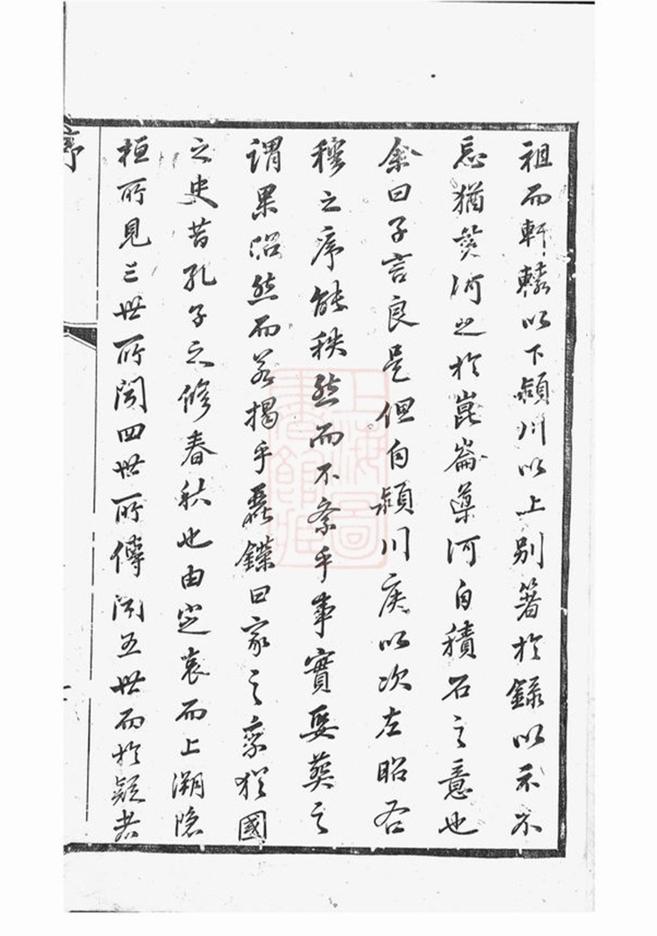 祖而軒轅以下潁川以上別著於錄以示不
忘猶黃河之於崑崙導河自積石之意也
余曰子言良是但自潁川侯以次左昭右
穆之序能秩然而不紊乎事實娶葬之
謂果昭然而若揭乎曰家之乘猶國
之史昔孔子之修春秋也由定哀而上溯隱
桓所見三世所聞四世所傳聞五世而於疑者
序
上海圖書館藏